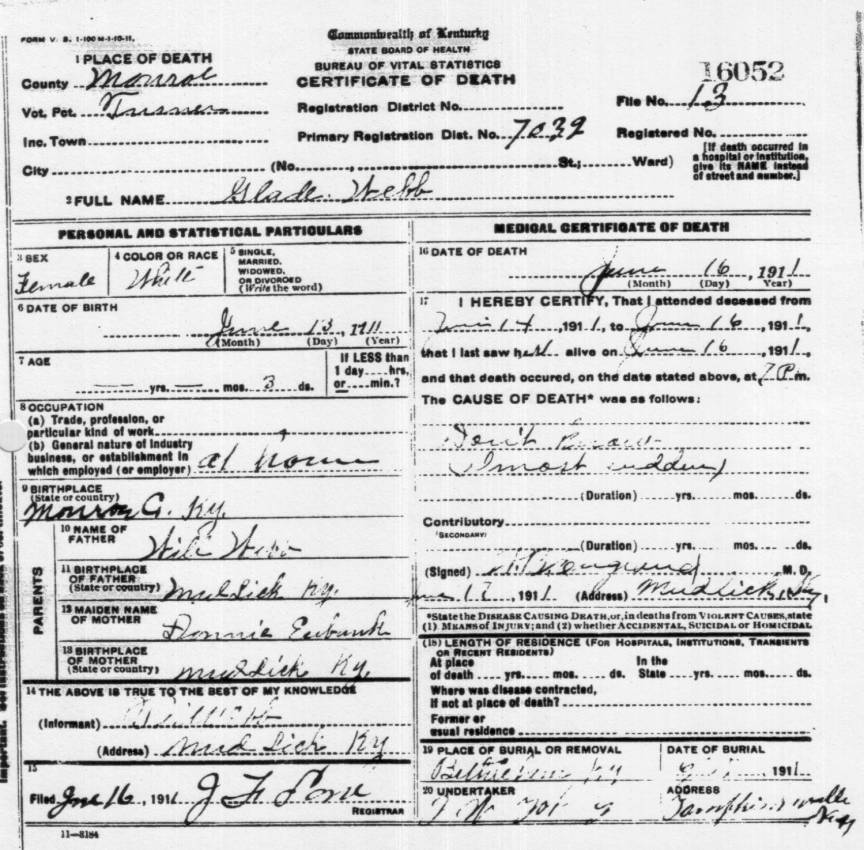 FORM V. S. 1-100 M-1-10-11.
Commonwealth of Kentucky
STATE BOARD OF HEALTH
BUREAU OF VITAL STATISTICS
CERTIFICATE OF DEATH
1 PLACE OF DEATH
County Monroe
Vot. Pct. Turner
Inc. Town
City
Registration District No.
Primary Registration Dist. No. 7039
16052
File No. 13
Registered No.
(No. , St.; Ward)
[If death occurred in a hospital or institution, give its NAME instead of street and number.]
2 FULL NAME Glade Webb
PERSONAL AND STATISTICAL PARTICULARS
3 SEX
Female
4 COLOR OR RACE
White
5 SINGLE, MARRIED, WIDOWED, OR DIVORCED (Write the word)
6 DATE OF BIRTH
June 13, 1911
(Month) (Day) (Year)
7 AGE
yrs. mos. 3 ds.
If LESS than 1 day hrs. or min.?
8 OCCUPATION
(a) Trade, profession, or particular kind of work
(b) General nature of industry business, or establishment in which employed (or employer) at home
9 BIRTHPLACE
(State or country)
Monroe Co. Ky.
PARENTS
10 NAME OF FATHER
Webb
11 BIRTHPLACE OF FATHER (State or country)
Mud Lick Ky.
12 MAIDEN NAME OF MOTHER
Donnie Eubank
13 BIRTHPLACE OF MOTHER (State or country)
Mud Lick Ky.
14 THE ABOVE IS TRUE TO THE BEST OF MY KNOWLEDGE
(Informant)
(Address) Mud Lick Ky
15
Filed Jne 16, 1911 J F
REGISTRAR
11-3184
MEDICAL CERTIFICATE OF DEATH
16 DATE OF DEATH
June 16, 1911
(Month) (Day) Year)
17 I HEREBY CERTIFY, That I attended deceased from
June 14, 1911, to June 16, 1911,
that I last saw her alive on June 16, 1911,
and that death occured, on the date stated above, at 7 P.m.
The CAUSE OF DEATH* was as follows:
Don't Know
(Almost sudden)
(Duration) yrs. mos. ds.
Contributory
(SECONDARY)
(Duration) yrs. mos. ds.
(Signed) M. D.
17, 1911 (Address) Mudlick, Ky.
*State the DISEASE CAUSING DEATH, or, in deaths from VIOLENT CAUSES, state
(1) MEANS OF INJURY; and (2) whether ACCIDENTAL, SUICIDAL or HOMICIDAL
(18) LENGTH OF RESIDENCE (FOR HOSPITALS, INSTITUTIONS, TRANSIENTS OR RECENT RESIDENTS)
At place of death yrs. mos. ds. In the State yrs. mos. ds.
Where was disease contracted,
If not at place of death?
Former or
usual residence
19 PLACE OF BURIAL OR REMOVAL
Bethlehem Ky
DATE OF BURIAL
1911
20 UNDERTAKER
ADDRESS
Tompkinsville
Ky